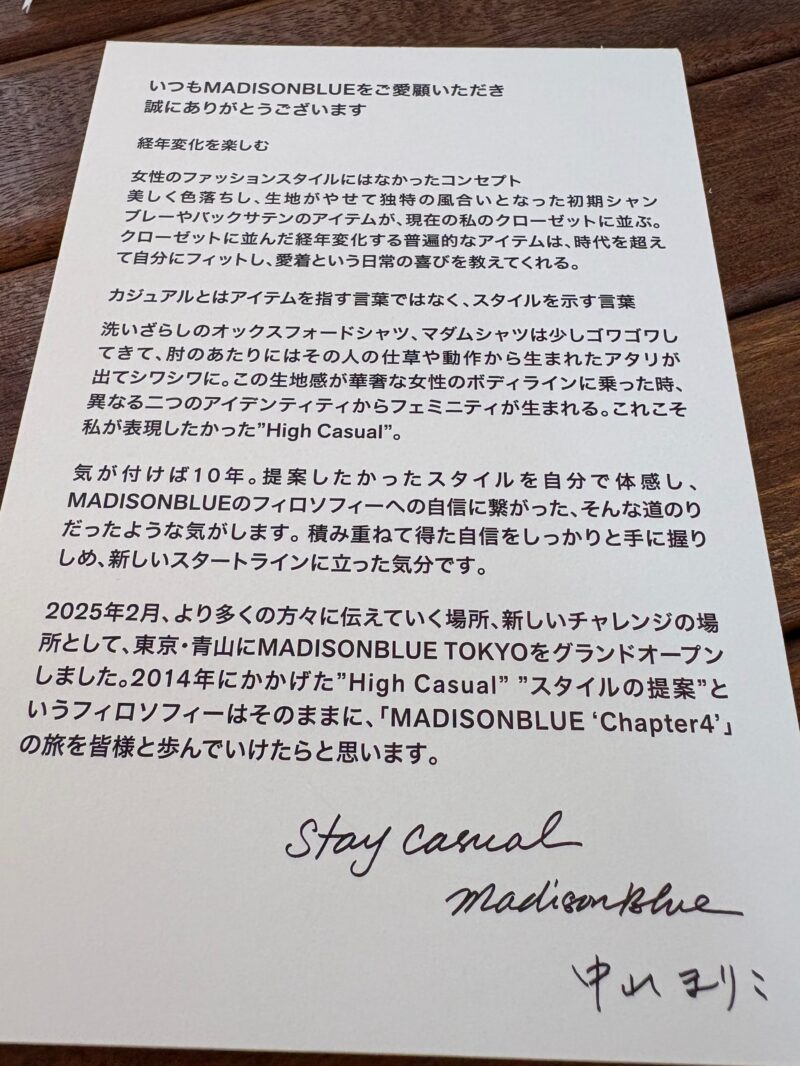 いつもMADISONBLUEをご愛顧いただき
誠にありがとうございます
経年変化を楽しむ
女性のファッションスタイルにはなかったコンセプト
美しく色落ちし、生地がやせて独特の風合いとなった初期シャン
ブレーやバックサテンのアイテムが、現在の私のクローゼットに並ぶ。
クローゼットに並んだ経年変化する普遍的なアイテムは、時代を超え
て自分にフィットし、愛着という日常の喜びを教えてくれる。
カジュアルとはアイテムを指す言葉ではなく、スタイルを示す言葉
洗いざらしのオックスフォードシャツ、マダムシャツは少しゴワゴワし
てきて、肘のあたりにはその人の仕草や動作から生まれたアタリが
出てシワシワに。この生地感が華奢な女性のボディラインに乗った時、
異なる二つのアイデンティティからフェミニティが生まれる。これこそ
私が表現したかった”High Casual”。
気が付けば10年。提案したかったスタイルを自分で体感し、
MADISONBLUEのフィロソフィーへの自信に繋がった、そんな道のり
だったような気がします。積み重ねて得た自信をしっかりと手に握り
しめ、新しいスタートラインに立った気分です。
2025年2月、より多くの方々に伝えていく場所、新しいチャレンジの場
所として、東京・青山にMADISONBLUE TOKYOをグランドオープン
しました。2014年にかかげた”High Casual” ”スタイルの提案”と
いうフィロソフィーはそのままに、「MADISONBLUE ‘Chapter4’」
の旅を皆様と歩んでいけたらと思います。
Stay Casual
MadisonBlue
中山 まりこ